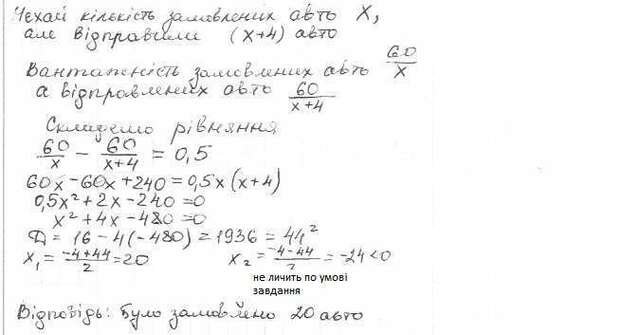 Нехай кількість замовлених авто X,
але відправили (x+4) авто
Вантажність замовлених авто 60/x
а відправлених авто 60/x+4
Складемо рівняння
60/x - 60/x+4 = 0,5
60x-60x+240=0,5x(x+4)
0,5x²+2x-240=0
x²+4x-480=0
Д=16-4(-480)=1936=44²
x₁=-4+44/2=20 x₂=-4-44/2=-24<0
не личить по умові
завдання
Відповідь: Було замовлено 20 авто